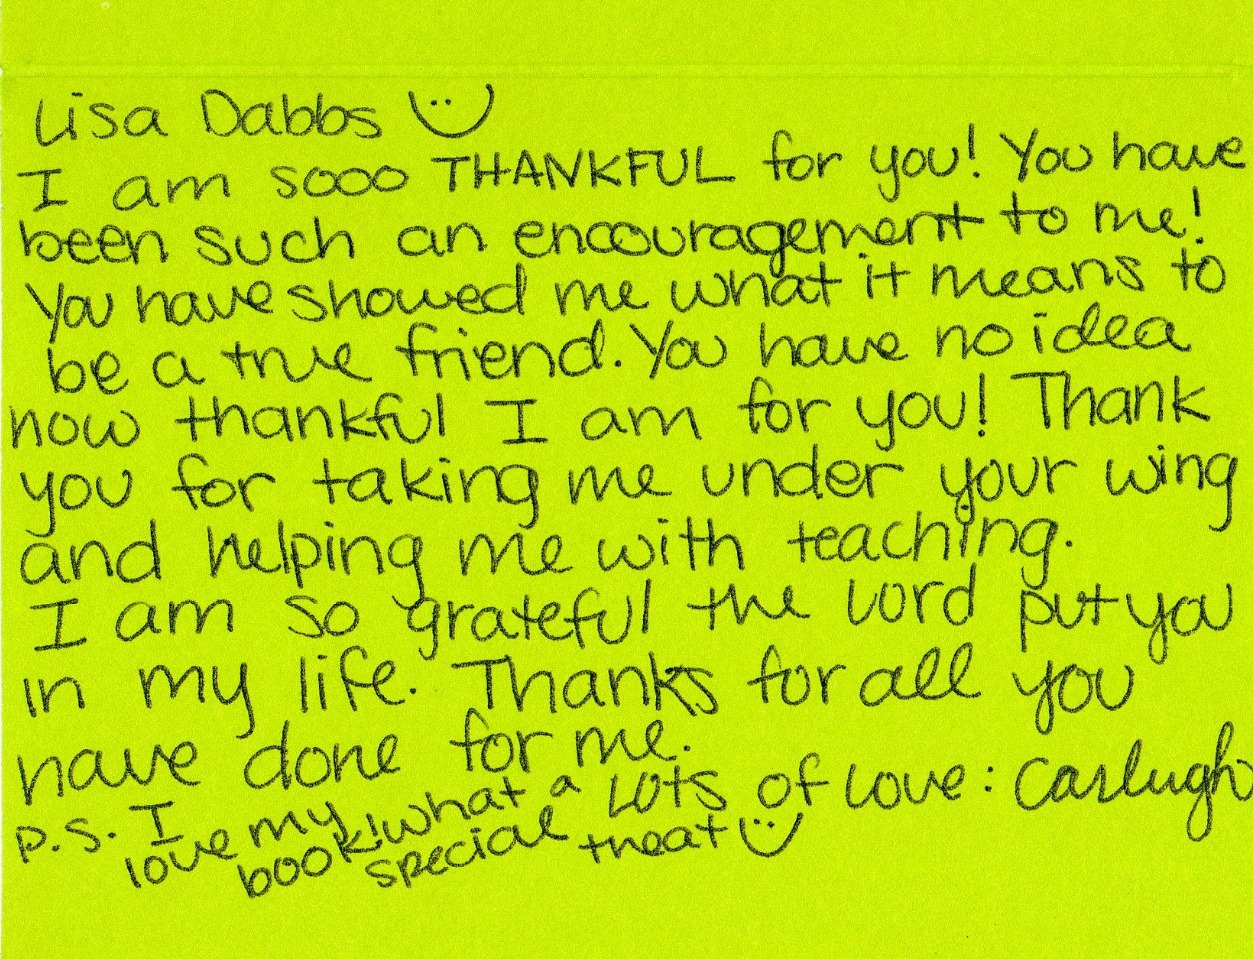 Lisa Dabbs
I am sooo THANKFUL for you! You have
been such an encouragement to me!
You have showed me what it means to
be a true friend. You have no idea
how thankful I am for you! Thank
you for taking me under your wing
and helping me with teaching.
I am so grateful the Lord put you
in my life. Thanks for all you
have done for me.
Lots of love:
P.S. I
love my
book! what a
special treat